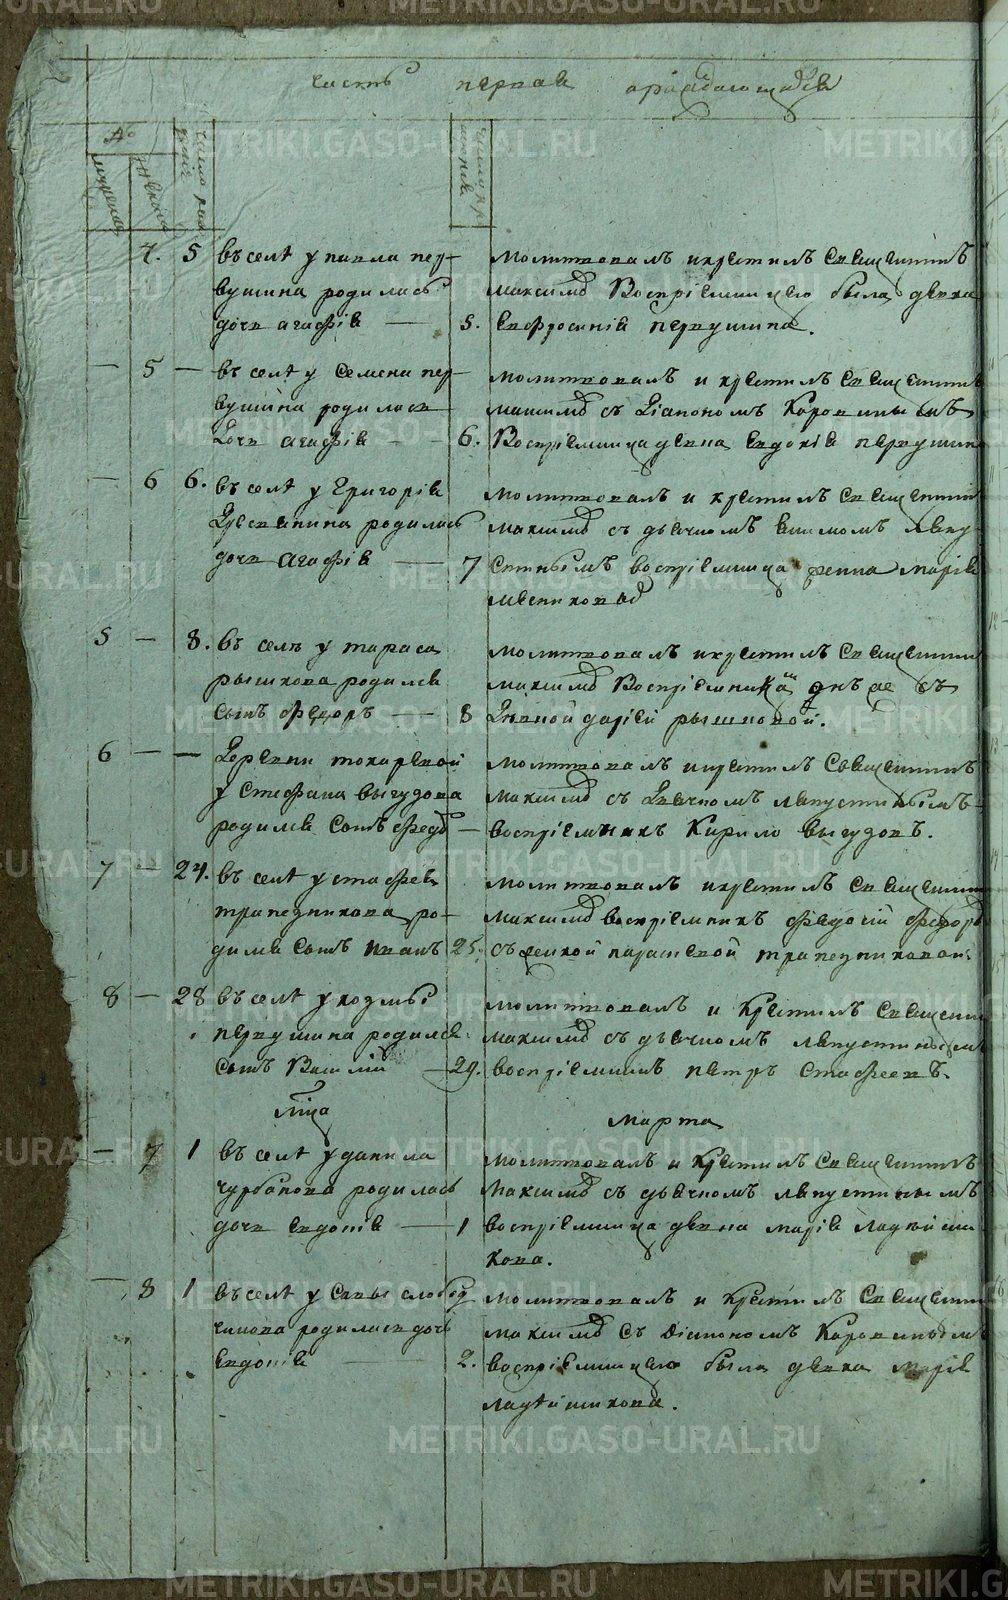 часть первая о раждающихся
№
число рож
число кр
мужеска
женска
4. 5 въ селѣ у павла пер-
вушина родилась
дочь агафія — 5.
молитвовалъ и крестилъ священникъ
максимъ Воспріемницею была девка
Евфросинія первушина.
— 5 — въ селѣ у Семена пер-
вушина родилась
Дочь агафія — 6.
молитвовалъ и крестилъ священникъ
максимъ съ Діакономъ Коровинымъ
Воспріемница девка Евдокія первушин
— 6 6. въ селѣ у Григорія
родилась
дочь Агафія — 7
молитвовалъ и крестилъ священник
максимъ съ дьячкомъ
воспріемница женка марія
мясникова
5 — 8. въ селѣ у тараса
рышкова родился
сынъ федоръ — 8
молитвовалъ и крестилъ священник
максимъ Воспріемникъ онъ же съ
Девкой даріей рышковой.
6 — — Деревни токаревой
у Стефана выгудова
родился Сынъ федо —
молитвовалъ и крестилъ Священникъ
максимъ съ Дьячкомъ
воспріемникъ Кирило выгудовъ.
7 — 24. въ селѣ у
трапезникова ро-
дился Сынъ иванъ 25.
молитвовалъ и крестилъ священник
максимъ воспріемникъ
съ женкой парасковой трапезниковой.
8 — 28 въ селѣ у козмы
первушина родился
сынъ Василій — 29.
молитвовалъ и крестилъ священник
максимъ съ дьячкомъ
воспріемникъ петръ Стафеевъ.
марта
— 7 1 въ селѣ у данила
чурбанова родилась
дочь Евдокія — 1
молитвовалъ и крестилъ священникъ
максимъ съ дьячкомъ
воспріемница девка марія ладѣйщи
кова.
— 8 1 въ селѣ у Савы слобод
чикова родилась дочь
Евдокія — 2.
молитвовалъ и крестилъ священни
максимъ Съ Діакономъ Коровинымъ
воспріемницею была девка марія
ладѣйщикова.
METRIKI.GASO-URAL.RU